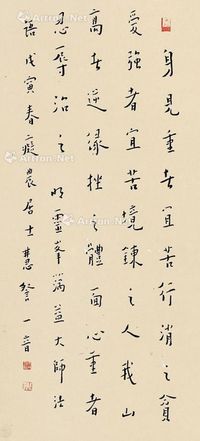 身見重者宜苦行消之貪
愛強者宜苦境鍊之人我山
高者逆緣挫之體面心重者
忍辱治之明靈峯蕅益大師法
語戊寅春癡居士慧詧一音